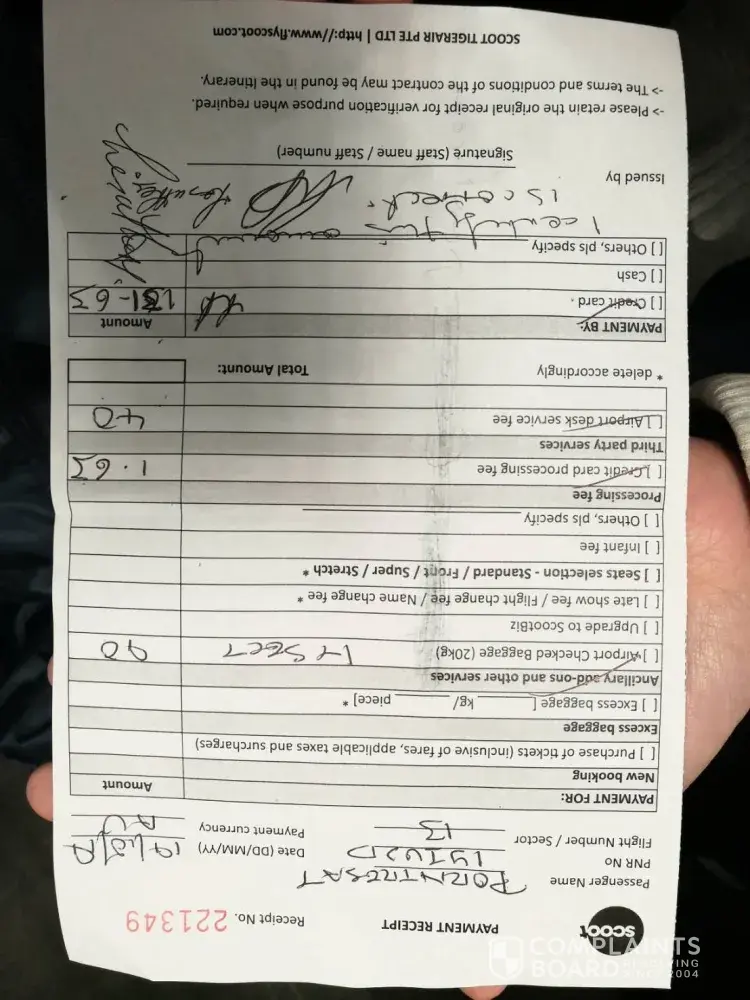 scoot
PAYMENT RECEIPT
Receipt No. 221349
Passenger Name PORNTRESAT
PNR No
Date (DD/MM/YY)
Flight Number / Sector 13
Payment currency AU
PAYMENT FOR:
Amount
New booking
[ ] Purchase of tickets (inclusive of fares, applicable taxes and surcharges)
Excess baggage
[ ] Excess baggage [ ______ kg/ ______ piece] *
Ancillary add-ons and other services
[ ] Airport Checked Baggage (20kg) 90
[ ] Upgrade to ScootBiz
[ ] Late show fee / Flight change fee / Name change fee *
[ ] Seats selection - Standard / Front / Super / Stretch *
[ ] Infant fee
[ ] Others, pls specify
Processing fee
[ ] Credit card processing fee 1.63
Third party services
[ ] Airport desk service fee 40
* delete accordingly
Total Amount:
PAYMENT BY:
Amount
[ ] Credit card 131-63
[ ] Cash
[ ] Others, pls specify
I certify this amount
is correct.
Issued by
Signature (Staff name / Staff number)
-> Please retain the original receipt for verification purpose when required.
-> The terms and conditions of the contract may be found in the Itinerary.
SCOOT TIGERAIR PTE LTD | http://www.flyscoot.com
COMPLAINTS
BOARD RESOLVING
SINCE 2004